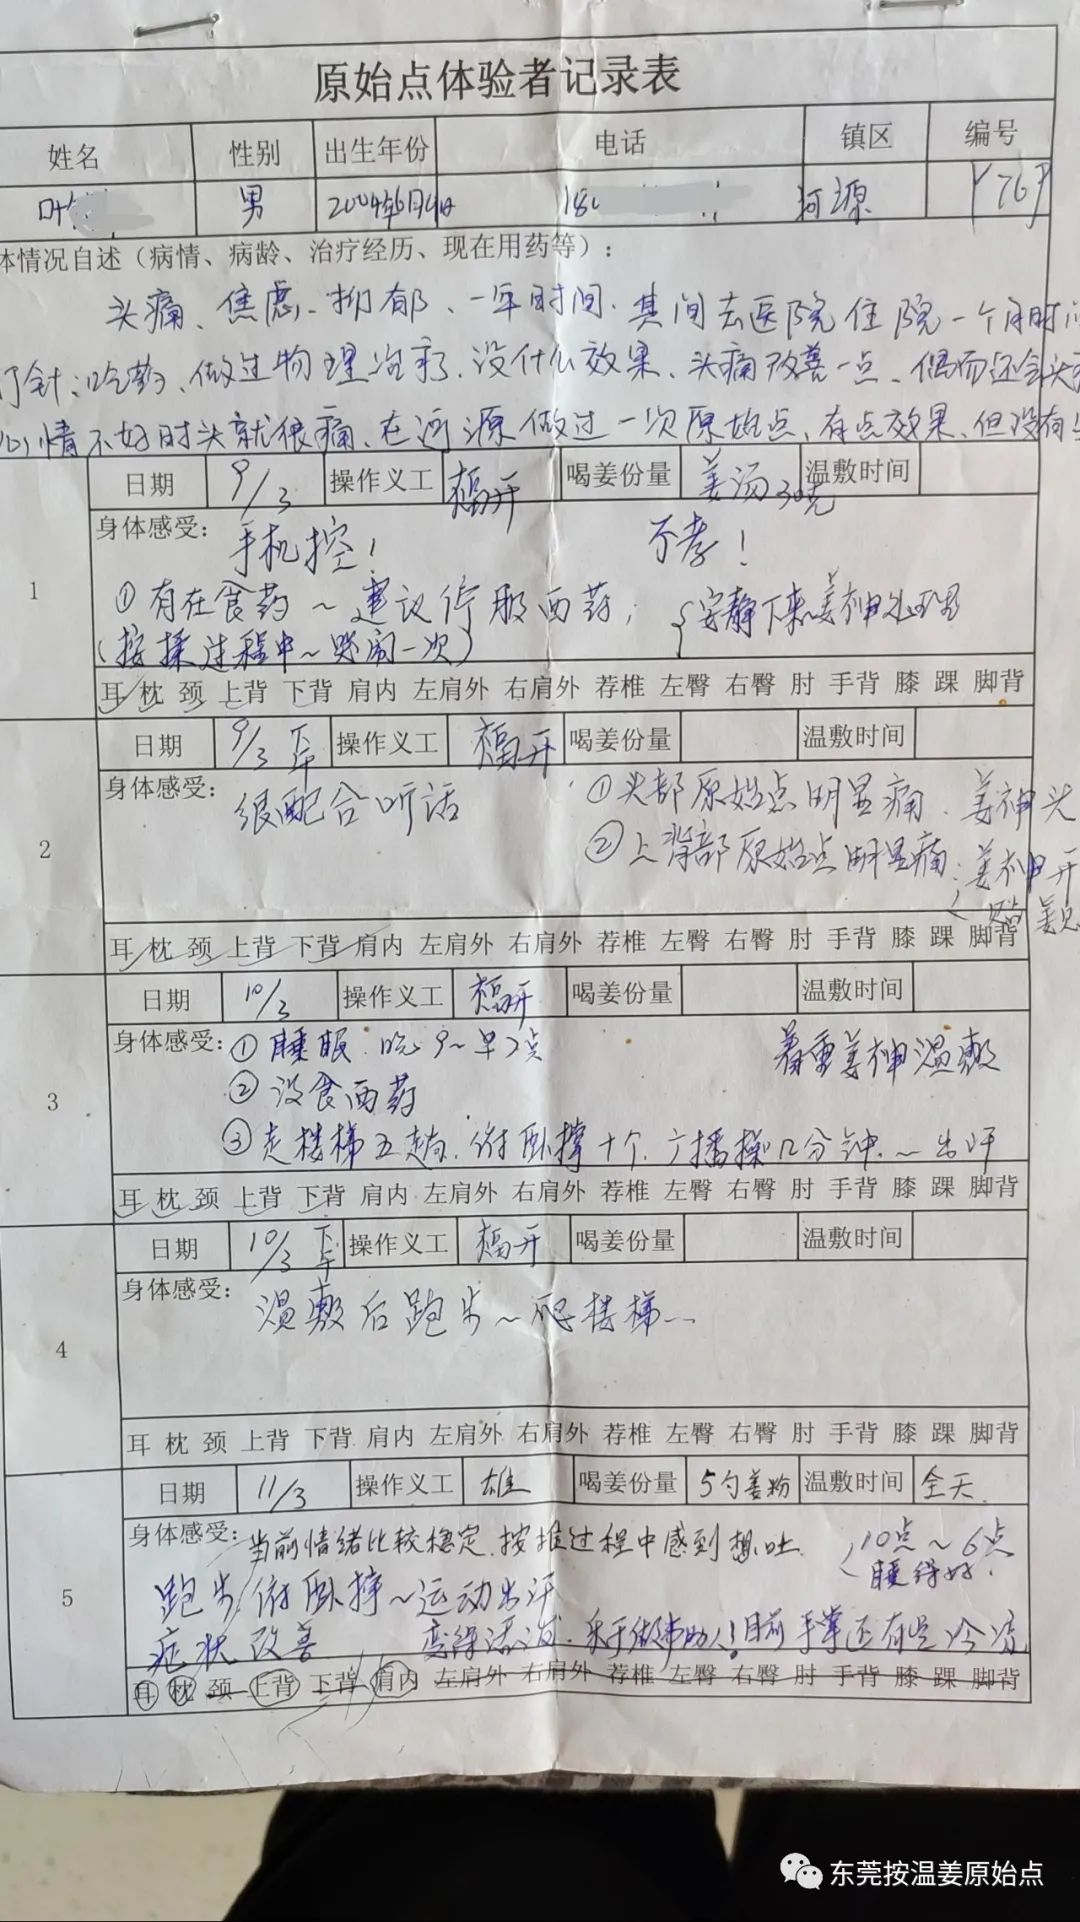 原始点体验者记录表
姓名 性别 出生年份 电话 镇区 编号
叶 男 2004年6月4日 180 河源 (76)
体情况自述（病情、病龄、治疗经历、现在用药等）：
头痛、焦虑、抑郁、一年时间. 其间去医院住院一个月时间
打针、吃药、做过物理治疗、没什么效果、头痛改善一点、偶而还会头
心情不好时头就很痛、在河源做过一次原始点、有点效果、但没有
1
日期 9/3 操作义工 福开 喝姜份量 姜汤30克 温敷时间
身体感受： 手机控！ 不孝！
①有在食药～建议停服西药； 安静下来姜神处理
（按揉过程中～ 闹一次）
耳 枕 颈 上背 下背 肩内 左肩外 右肩外 荐椎 左臀 右臀 肘 手背 膝 踝 脚背
2
日期 9/3 下午 操作义工 福开 喝姜份量 温敷时间
身体感受： 很配合听话 ①头部原始点明显痛、姜神头
②上背部原始点明显痛：姜神开
耳 枕 颈 上背 下背 肩内 左肩外 右肩外 荐椎 左臀 右臀 肘 手背 膝 踝 脚背
3
日期 10/3 操作义工 福开 喝姜份量 温敷时间
身体感受： ①睡眠：晚9～早7点 着重姜神温敷
②没食西药
③走楼梯五趟. 俯卧撑十个. 广播操12分钟. ～出汗
耳 枕 颈 上背 下背 肩内 左肩外 右肩外 荐椎 左臀 右臀 肘 手背 膝 踝 脚背
4
日期 10/3 下午 操作义工 福开 喝姜份量 温敷时间
身体感受： 温敷后跑步～爬楼梯…
耳 枕 颈 上背 下背 肩内 左肩外 右肩外 荐椎 左臀 右臀 肘 手背 膝 踝 脚背
5
日期 11/3 操作义工 雄 喝姜份量 5勺姜粉 温敷时间 全天.
身体感受： 当前情绪比较稳定. 按推过程中感到想吐. 10点～6点
睡得好.
跑步/俯卧撑～运动出汗
症状改善 变得活泼. 乐于做事助人！目前手掌还有些冷凉
耳 枕 颈 上背 下背 肩内 左肩外 右肩外 荐椎 左臀 右臀 肘 手背 膝 踝 脚背
东莞按温姜原始点